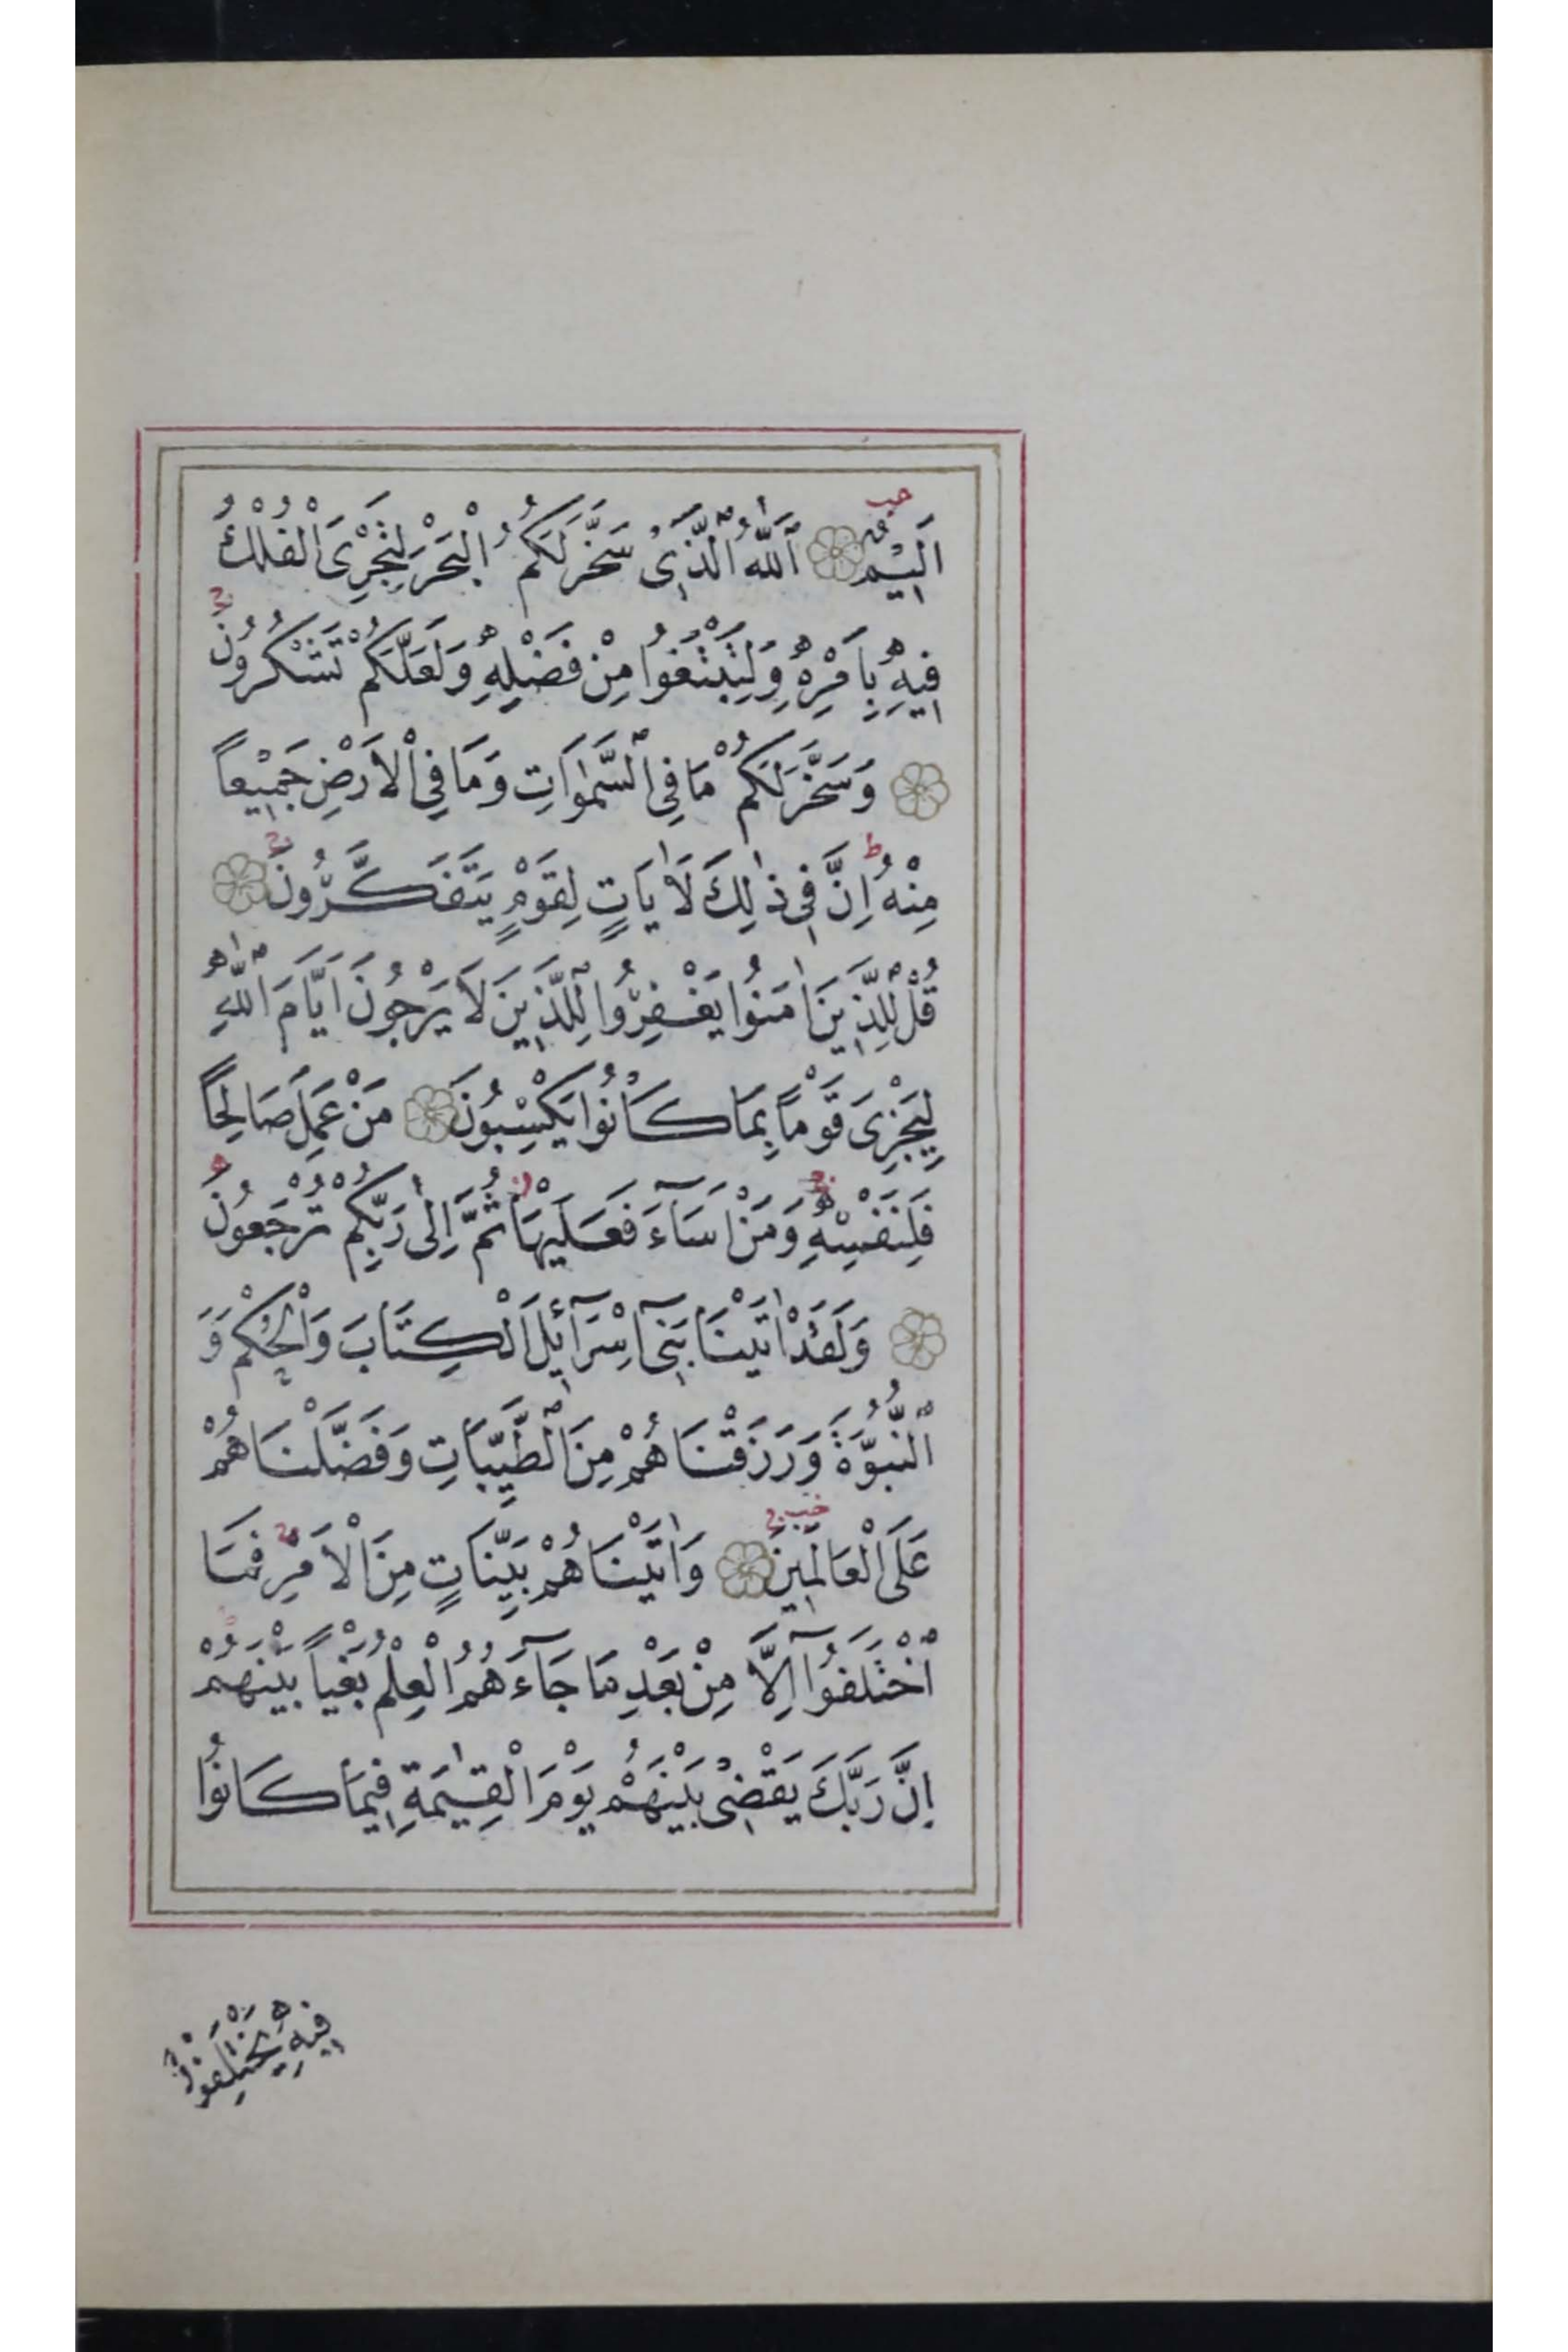 اَلِيمٌ ۝ اَللّٰهُ الَّذِى سَخَّرَ لَكُمُ الْبَحْرَ لِتَجْرِىَ الْفُلْكُ
فِيهِ بِاَمْرِهِ وَلِتَبْتَغُوا مِنْ فَضْلِهِ وَلَعَلَّكُمْ تَشْكُرُونَ
۝ وَسَخَّرَ لَكُمْ مَا فِى السَّمٰوَاتِ وَمَا فِى الْاَرْضِ جَمِيْعاً
مِنْهُ ط اِنَّ فِى ذٰلِكَ لَاٰيَاتٍ لِقَوْمٍ يَتَفَكَّرُونَ ۝
قُلْ لِلَّذِينَ اٰمَنُوا يَغْفِرُوا لِلَّذِينَ لَا يَرْجُونَ اَيَّامَ اللّٰهِ
لِيَجْزِىَ قَوْماً بِمَا كَانُوا يَكْسِبُونَ ۝ مَنْ عَمِلَ صَالِحاً
فَلِنَفْسِهِ وَمَنْ اَسَآءَ فَعَلَيْهَا ثُمَّ اِلٰى رَبِّكُمْ تُرْجَعُونَ
۝ وَلَقَدْ اٰتَيْنَا بَنِىٓ اِسْرَآئِلَ الْكِتَابَ وَالْحُكْمَ وَ
النُّبُوَّةَ وَرَزَقْنَاهُمْ مِنَ الطَّيِّبَاتِ وَفَضَّلْنَاهُمْ
عَلَى الْعَالَمِينَ ۝ وَاٰتَيْنَاهُمْ بَيِّنَاتٍ مِنَ الْاَمْرِ فَمَا
اخْتَلَفُوٓا اِلَّا مِنْ بَعْدِ مَا جَآءَهُمُ الْعِلْمُ بَغْياً بَيْنَهُمْ
اِنَّ رَبَّكَ يَقْضِى بَيْنَهُمْ يَوْمَ الْقِيٰمَةِ فِيمَا كَانُوا
فِيهِ يَخْتَلِفُونَ